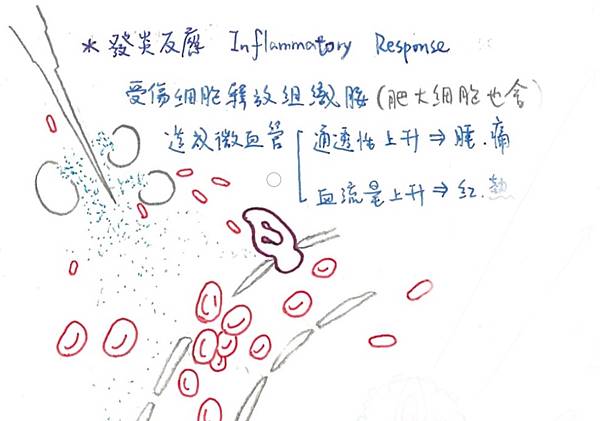 * 發炎反應 Inflammatory Response
受傷細胞釋放組織胺(肥大細胞也會)
造成微血管 通透性上升⇒腫.痛
血流量上升⇒紅.熱